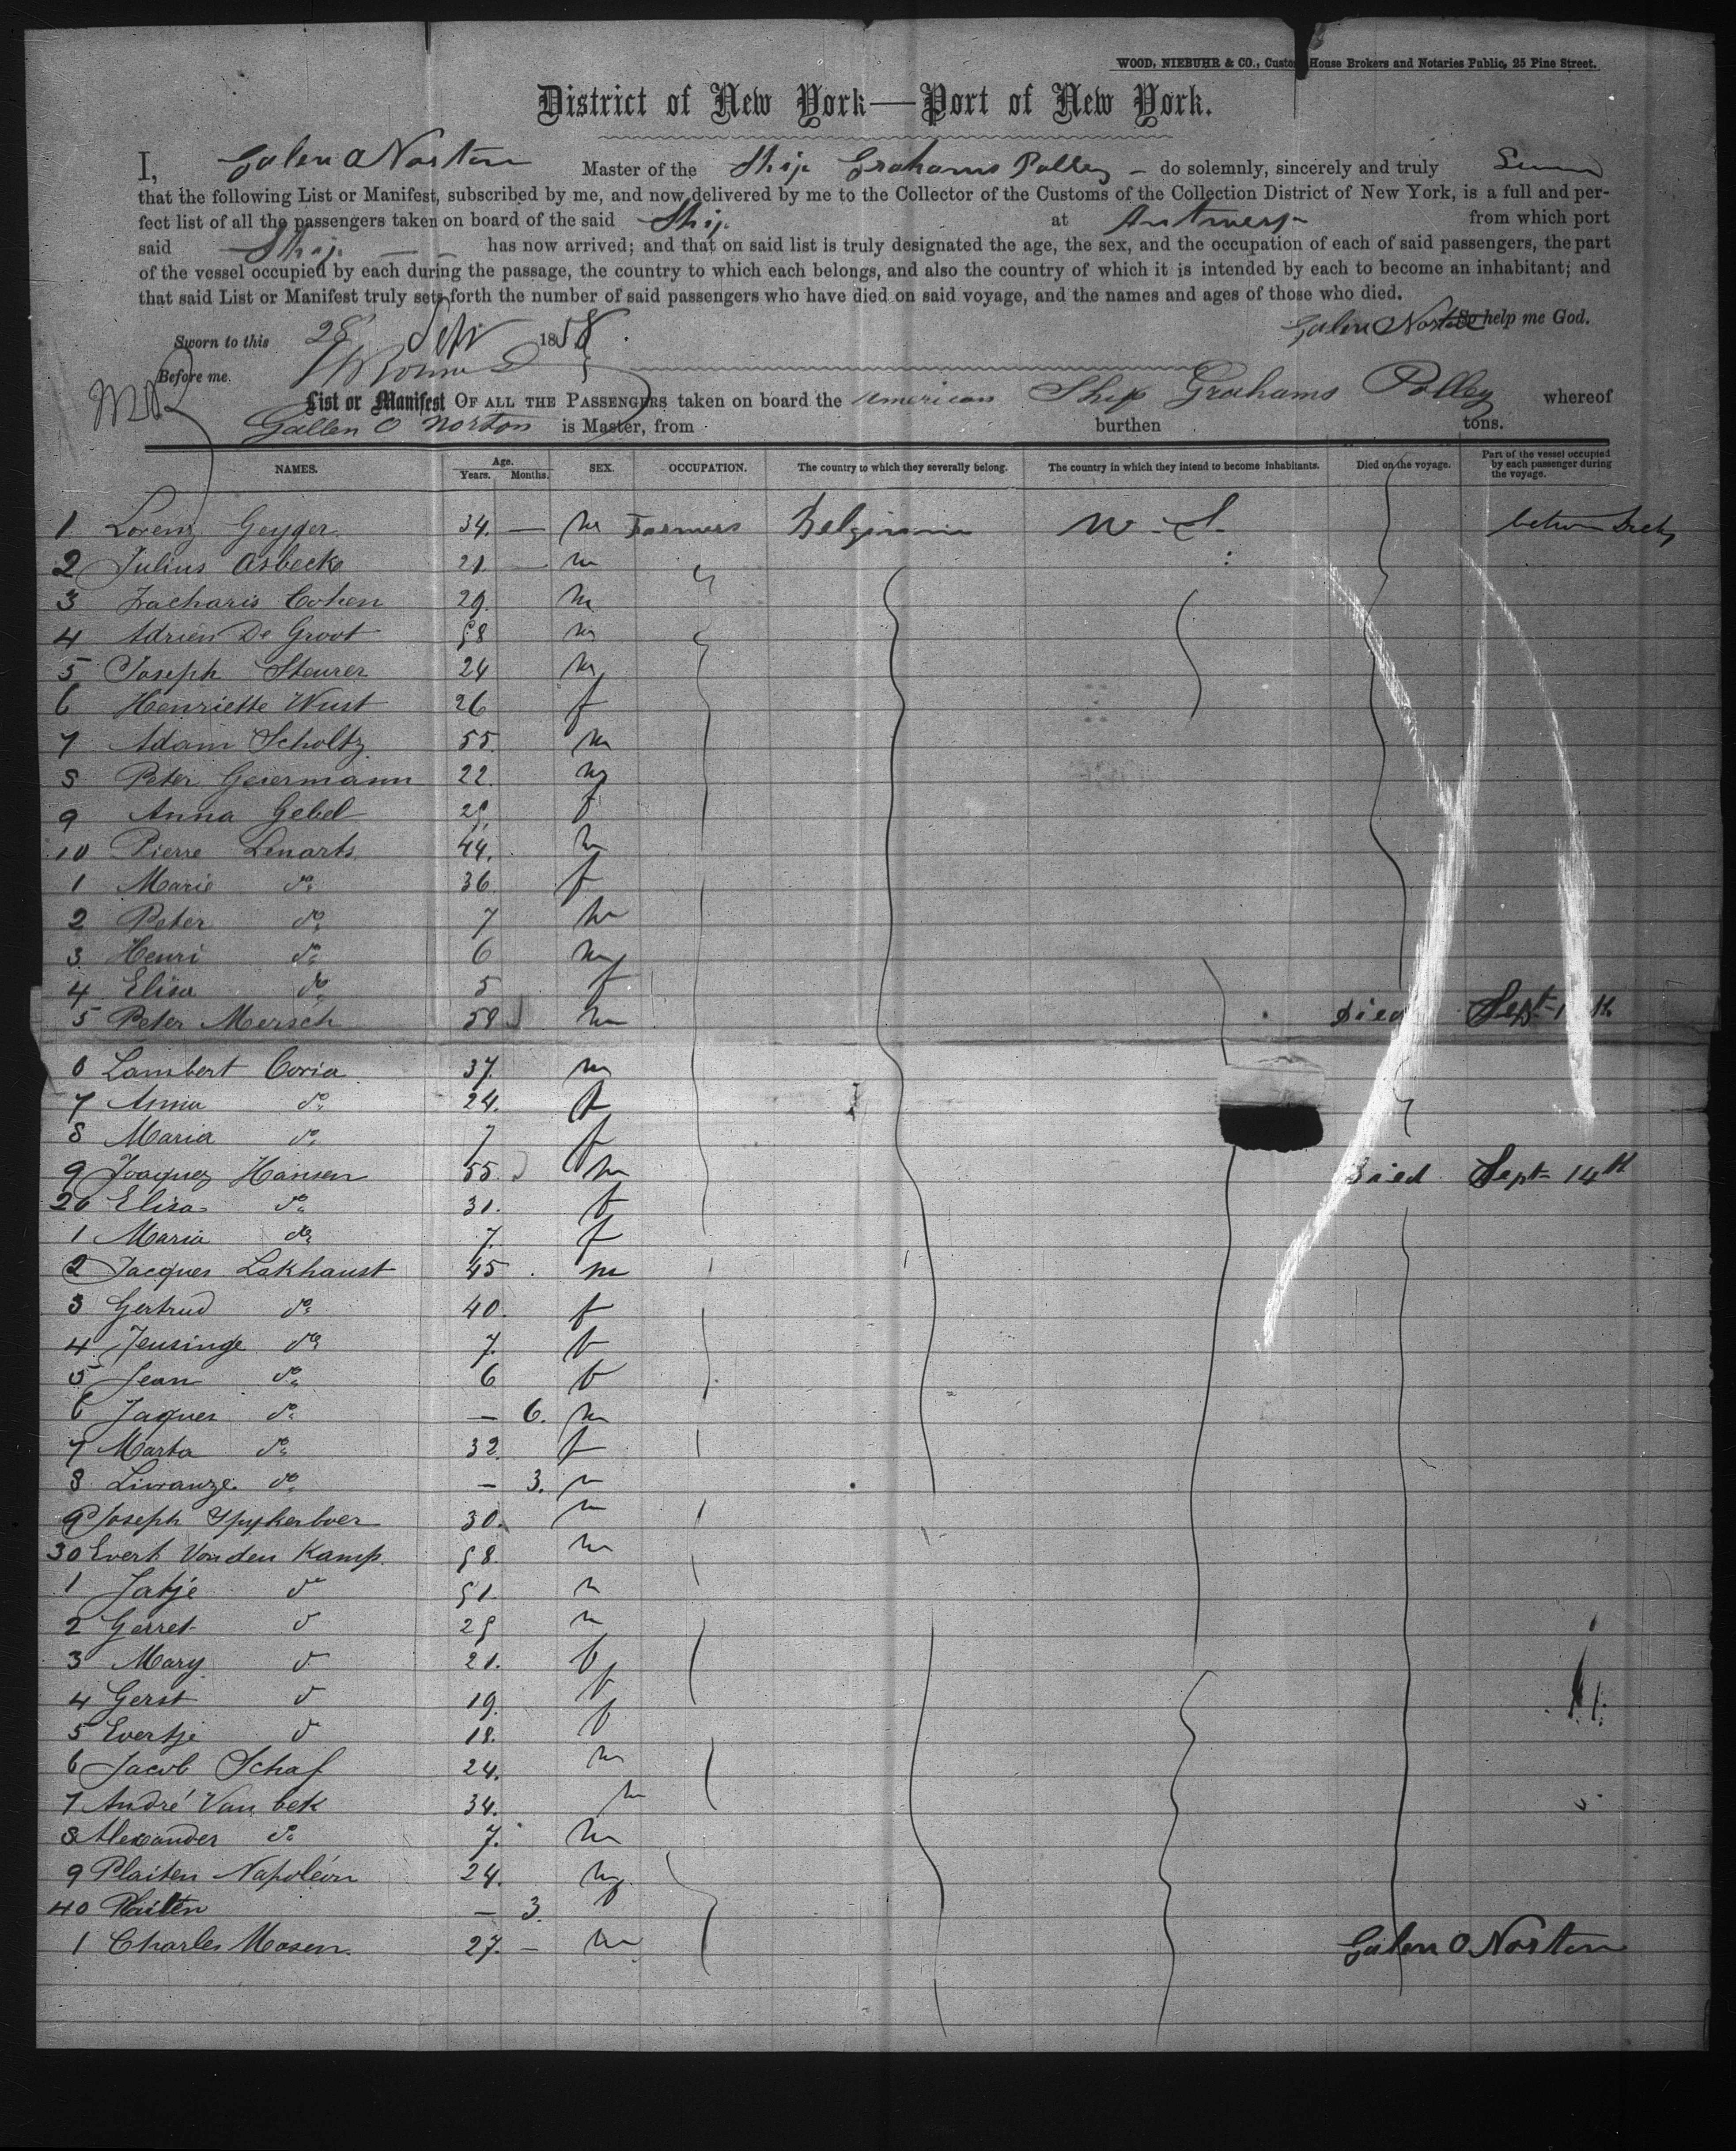 WOOD, NIEBUHR & CO., Custom House Brokers and Notaries Public, 25 Pine Street.
District of New York—Port of New York.
I, Galen O Norton Master of the Ship Grahams Polley – do solemnly, sincerely and truly
that the following List or Manifest, subscribed by me, and now delivered by me to the Collector of the Customs of the Collection District of New York, is a full and per-
fect list of all the passengers taken on board of the said Ship at Antwerp from which port
said Ship has now arrived; and that on said list is truly designated the age, the sex, and the occupation of each of said passengers, the part
of the vessel occupied by each during the passage, the country to which each belongs, and also the country of which it is intended by each to become an inhabitant; and
that said List or Manifest truly sets forth the number of said passengers who have died on said voyage, and the names and ages of those who died.
Galen O Norton So help me God.
Sworn to this 28 Sept 1858
Before me.
List or Manifest OF ALL THE PASSENGERS taken on board the american Ship Grahams Polley whereof
Gallen O Norton is Master, from burthen tons.
NAMES. Age. Years. Months. SEX. OCCUPATION. The country to which they severally belong. The country in which they intend to become inhabitants. Died on the voyage. Part of the vessel occupied by each passenger during the voyage.
1 Lorenz Geyger 34. — m Farmers Belgium U.S. between Deck
2 Julius Asbeck 21. — m
3 Zacharis Cohen 29. m
4 Adrien De Groot 58 m
5 Joseph Steurer 24 m
6 Henriette Wust 26 f
7 Adam Scholtz 55. m
8 Peter Geiermann 22. m
9 Anna Gebel 25. f
10 Pierre Lenarts 44. m
1 Marie do 36. f
2 Peter do 7 m
3 Henri do 6 m
4 Elisa do 5 f
5 Peter Mersch 58 m Died Sept
6 Lambert Coria 37. m
7 Anna do 24. f
8 Maria do 7 f
9 Joaques Hansen 55 m Died Sept 14th
20 Elisa do 31. f
1 Maria do 7. f
2 Jacques Lakhaust 45 m
3 Gertrud do 40. f
4 Jensinge do 7. f
5 Jean do 6 f
6 Jaques do — 6. m
7 Marta do 32. f
8 Livranze do — 3. m
9 Joseph Spykerboer 30. m
30 Evert Von den Kamp. 58. m
1 Jatje do 51. m
2 Gerret do 25 m
3 Mary do 21. f
4 Gerst do 19. f
5 Evertje do 18. f
6 Jacob Schaf 24. m
7 André Van bek 34. m
8 Alexander do 7. m
9 Plaiten Napoléon 24. m
40 Plaiten — 3. f
1 Charles Mosen. 27. – m Galen O Norton